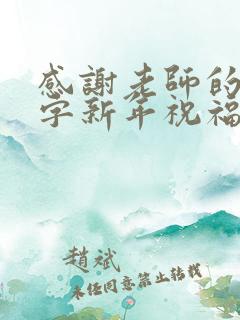 感謝老師的
字新年祝福
趙斌
未任同意禁止转载